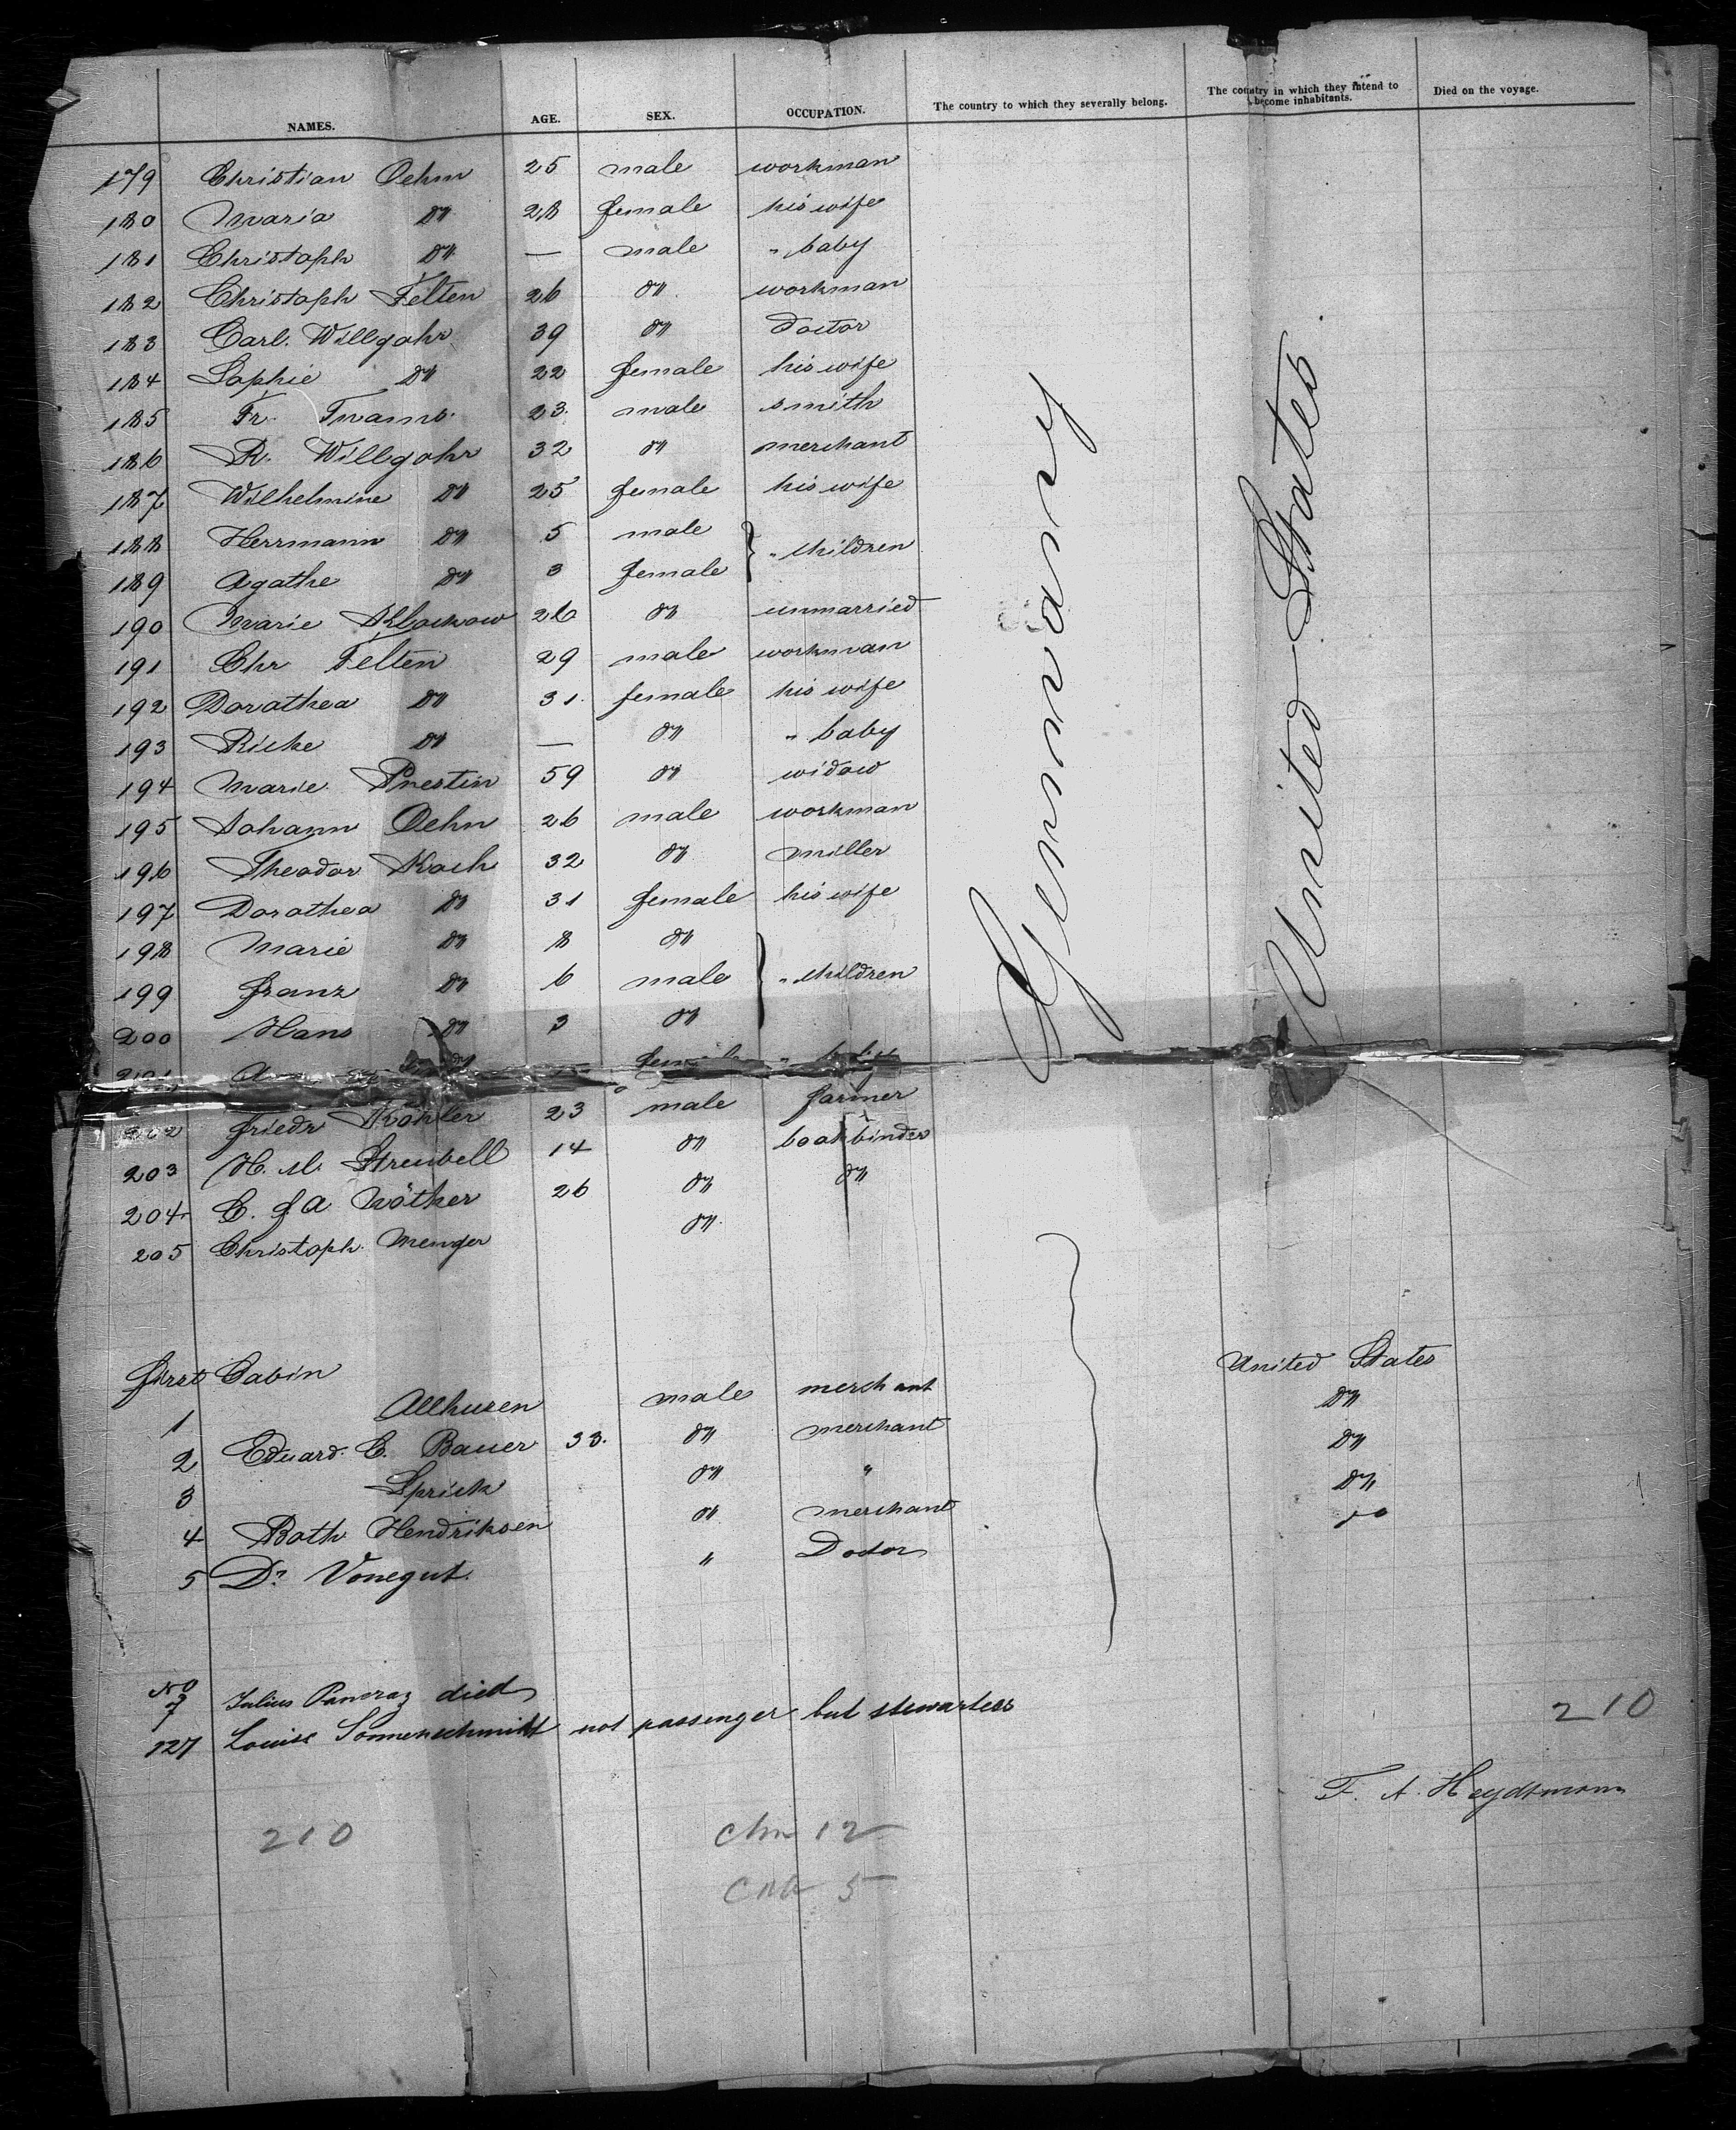 NAMES. AGE. SEX. OCCUPATION. The country to which they severally belong. The country in which they intend to become inhabitants. Died on the voyage.
179 Christian Oehm 25 male workman
180 Maria do 28 female his wife
181 Christoph do — male " baby
182 Christoph Felten 26 do workman
183 Carl. Willgohr 39 do doctor
184 Sophie do 22 female his wife
185 Fr. 23. male smith
186 R. Willgohr 32 do merchant
187 Wilhelmine do 25 female his wife
188 Herrmann do 5 male
" children
189 Agathe do 3 female
190 Marie Klockow 26 do unmarried
191 Chr Felten 29 male workman
192 Dorothea do 31. female his wife
193 Rieke do — do " baby
194 Marie Prestin 59 do widow
195 Johann Oehn 26 male workman
196 Theodor Koch 32 do miller
197 Dorothea do 31 female his wife
198 Marie do 8 do
199 Franz do 6 male " children
200 Hans do 3 do
201 do " baby
202 Friedr Köhler 23 male farmer
203 H. M. Streubell 14 do bookbinder
204 C. F. A. Nöther 26 do do
205 Christoph. Menger do.
Germany
United States.
First Cabin United States
1 Allhusen male merchant do
2 Eduard. C. Bauer 33. do merchant do
3 Sprick do " do
4 Both Hendriksen do merchant do
5 Dr. Vonegut. " Doctor
No
7 Julius Pancraz died
127 Louise Sonnenschmidt not passenger but stewartess
210
F. A. Heydtmann
210
Chn 12
5